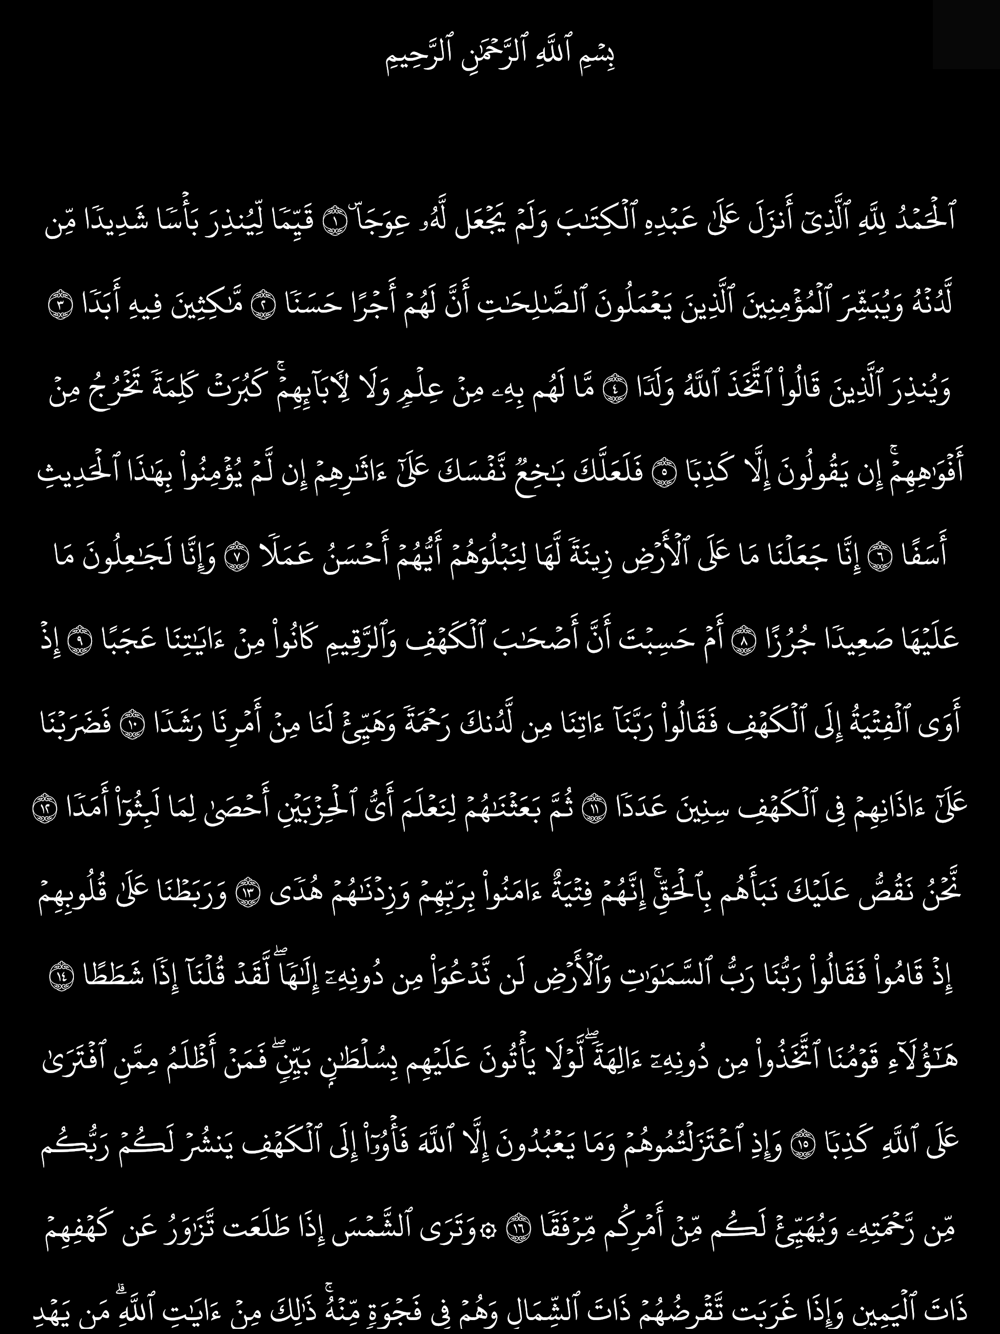 بِسۡمِ ٱللَّهِ ٱلرَّحۡمَٰنِ ٱلرَّحِيمِ
ٱلۡحَمۡدُ لِلَّهِ ٱلَّذِيٓ أَنزَلَ عَلَىٰ عَبۡدِهِ ٱلۡكِتَٰبَ وَلَمۡ يَجۡعَل لَّهُۥ عِوَجَاۜ ١ قَيِّمٗا لِّيُنذِرَ بَأۡسٗا شَدِيدٗا مِّن
لَّدُنۡهُ وَيُبَشِّرَ ٱلۡمُؤۡمِنِينَ ٱلَّذِينَ يَعۡمَلُونَ ٱلصَّٰلِحَٰتِ أَنَّ لَهُمۡ أَجۡرًا حَسَنٗا ٢ مَّٰكِثِينَ فِيهِ أَبَدٗا ٣
وَيُنذِرَ ٱلَّذِينَ قَالُواْ ٱتَّخَذَ ٱللَّهُ وَلَدٗا ٤ مَّا لَهُم بِهِۦ مِنۡ عِلۡمٖ وَلَا لِأٓبَآئِهِمۡۚ كَبُرَتۡ كَلِمَةٗ تَخۡرُجُ مِنۡ
أَفۡوَٰهِهِمۡۚ إِن يَقُولُونَ إِلَّا كَذِبٗا ٥ فَلَعَلَّكَ بَٰخِعٞ نَّفۡسَكَ عَلَىٰٓ ءَاثَٰرِهِمۡ إِن لَّمۡ يُؤۡمِنُواْ بِهَٰذَا ٱلۡحَدِيثِ
أَسَفًا ٦ إِنَّا جَعَلۡنَا مَا عَلَى ٱلۡأَرۡضِ زِينَةٗ لَّهَا لِنَبۡلُوَهُمۡ أَيُّهُمۡ أَحۡسَنُ عَمَلٗا ٧ وَإِنَّا لَجَٰعِلُونَ مَا
عَلَيۡهَا صَعِيدٗا جُرُزًا ٨ أَمۡ حَسِبۡتَ أَنَّ أَصۡحَٰبَ ٱلۡكَهۡفِ وَٱلرَّقِيمِ كَانُواْ مِنۡ ءَايَٰتِنَا عَجَبًا ٩ إِذۡ
أَوَى ٱلۡفِتۡيَةُ إِلَى ٱلۡكَهۡفِ فَقَالُواْ رَبَّنَآ ءَاتِنَا مِن لَّدُنكَ رَحۡمَةٗ وَهَيِّئۡ لَنَا مِنۡ أَمۡرِنَا رَشَدٗا ١٠ فَضَرَبۡنَا
عَلَىٰٓ ءَاذَانِهِمۡ فِي ٱلۡكَهۡفِ سِنِينَ عَدَدٗا ١١ ثُمَّ بَعَثۡنَٰهُمۡ لِنَعۡلَمَ أَيُّ ٱلۡحِزۡبَيۡنِ أَحۡصَىٰ لِمَا لَبِثُوٓاْ أَمَدٗا ١٢
نَّحۡنُ نَقُصُّ عَلَيۡكَ نَبَأَهُم بِٱلۡحَقِّۚ إِنَّهُمۡ فِتۡيَةٌ ءَامَنُواْ بِرَبِّهِمۡ وَزِدۡنَٰهُمۡ هُدٗى ١٣ وَرَبَطۡنَا عَلَىٰ قُلُوبِهِمۡ
إِذۡ قَامُواْ فَقَالُواْ رَبُّنَا رَبُّ ٱلسَّمَٰوَٰتِ وَٱلۡأَرۡضِ لَن نَّدۡعُوَاْ مِن دُونِهِۦٓ إِلَٰهٗاۖ لَّقَدۡ قُلۡنَآ إِذٗا شَطَطًا ١٤
هَٰٓؤُلَآءِ قَوۡمُنَا ٱتَّخَذُواْ مِن دُونِهِۦٓ ءَالِهَةٗۖ لَّوۡلَا يَأۡتُونَ عَلَيۡهِم بِسُلۡطَٰنِۭ بَيِّنٖۖ فَمَنۡ أَظۡلَمُ مِمَّنِ ٱفۡتَرَىٰ
عَلَى ٱللَّهِ كَذِبٗا ١٥ وَإِذِ ٱعۡتَزَلۡتُمُوهُمۡ وَمَا يَعۡبُدُونَ إِلَّا ٱللَّهَ فَأۡوُۥٓاْ إِلَى ٱلۡكَهۡفِ يَنشُرۡ لَكُمۡ رَبُّكُم
مِّن رَّحۡمَتِهِۦ وَيُهَيِّئۡ لَكُم مِّنۡ أَمۡرِكُم مِّرۡفَقٗا ١٦ ۞ وَتَرَى ٱلشَّمۡسَ إِذَا طَلَعَت تَّزَٰوَرُ عَن كَهۡفِهِمۡ
ذَاتَ ٱلۡيَمِينِ وَإِذَا غَرَبَت تَّقۡرِضُهُمۡ ذَاتَ ٱلشِّمَالِ وَهُمۡ فِي فَجۡوَةٖ مِّنۡهُۚ ذَٰلِكَ مِنۡ ءَايَٰتِ ٱللَّهِۗ مَن يَهۡدِ